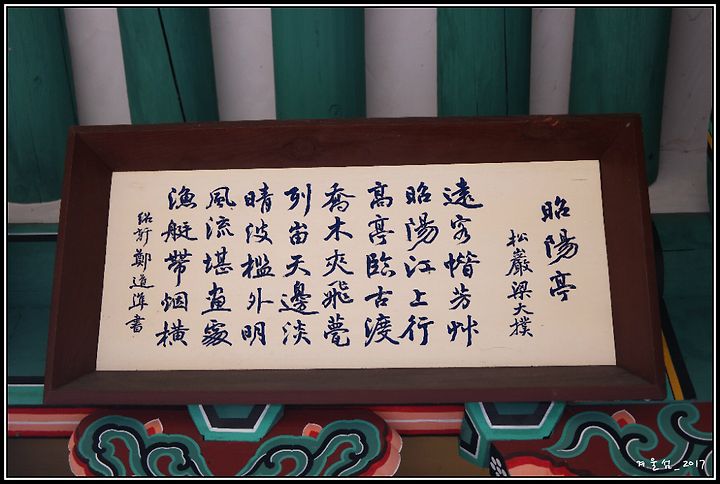 昭陽亭
松巖梁大撲
遠客惜芳艸
昭陽江上行
高亭臨古渡
喬木夾飛甍
列峀天邊淡
晴波檻外明
風流堪畫處
漁艇帶烟橫
紹軒鄭道準書
겨울섬_2017